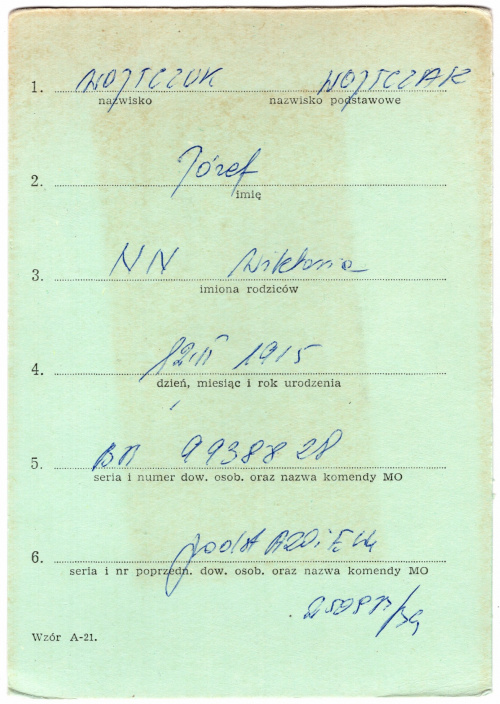 1. WOJTCZUK WOJTCZAK
nazwisko nazwisko podstawowe
2. Józef
imię
3. NN Wiktoria
imiona rodziców
4. 12.II 1915
dzień, miesiąc i rok urodzenia
5. BM 9938828
seria i numer dow. osob. oraz nazwa komendy MO
6.
seria i nr poprzedn. dow. osob. oraz nazwa komendy MO
Wzór A-21.